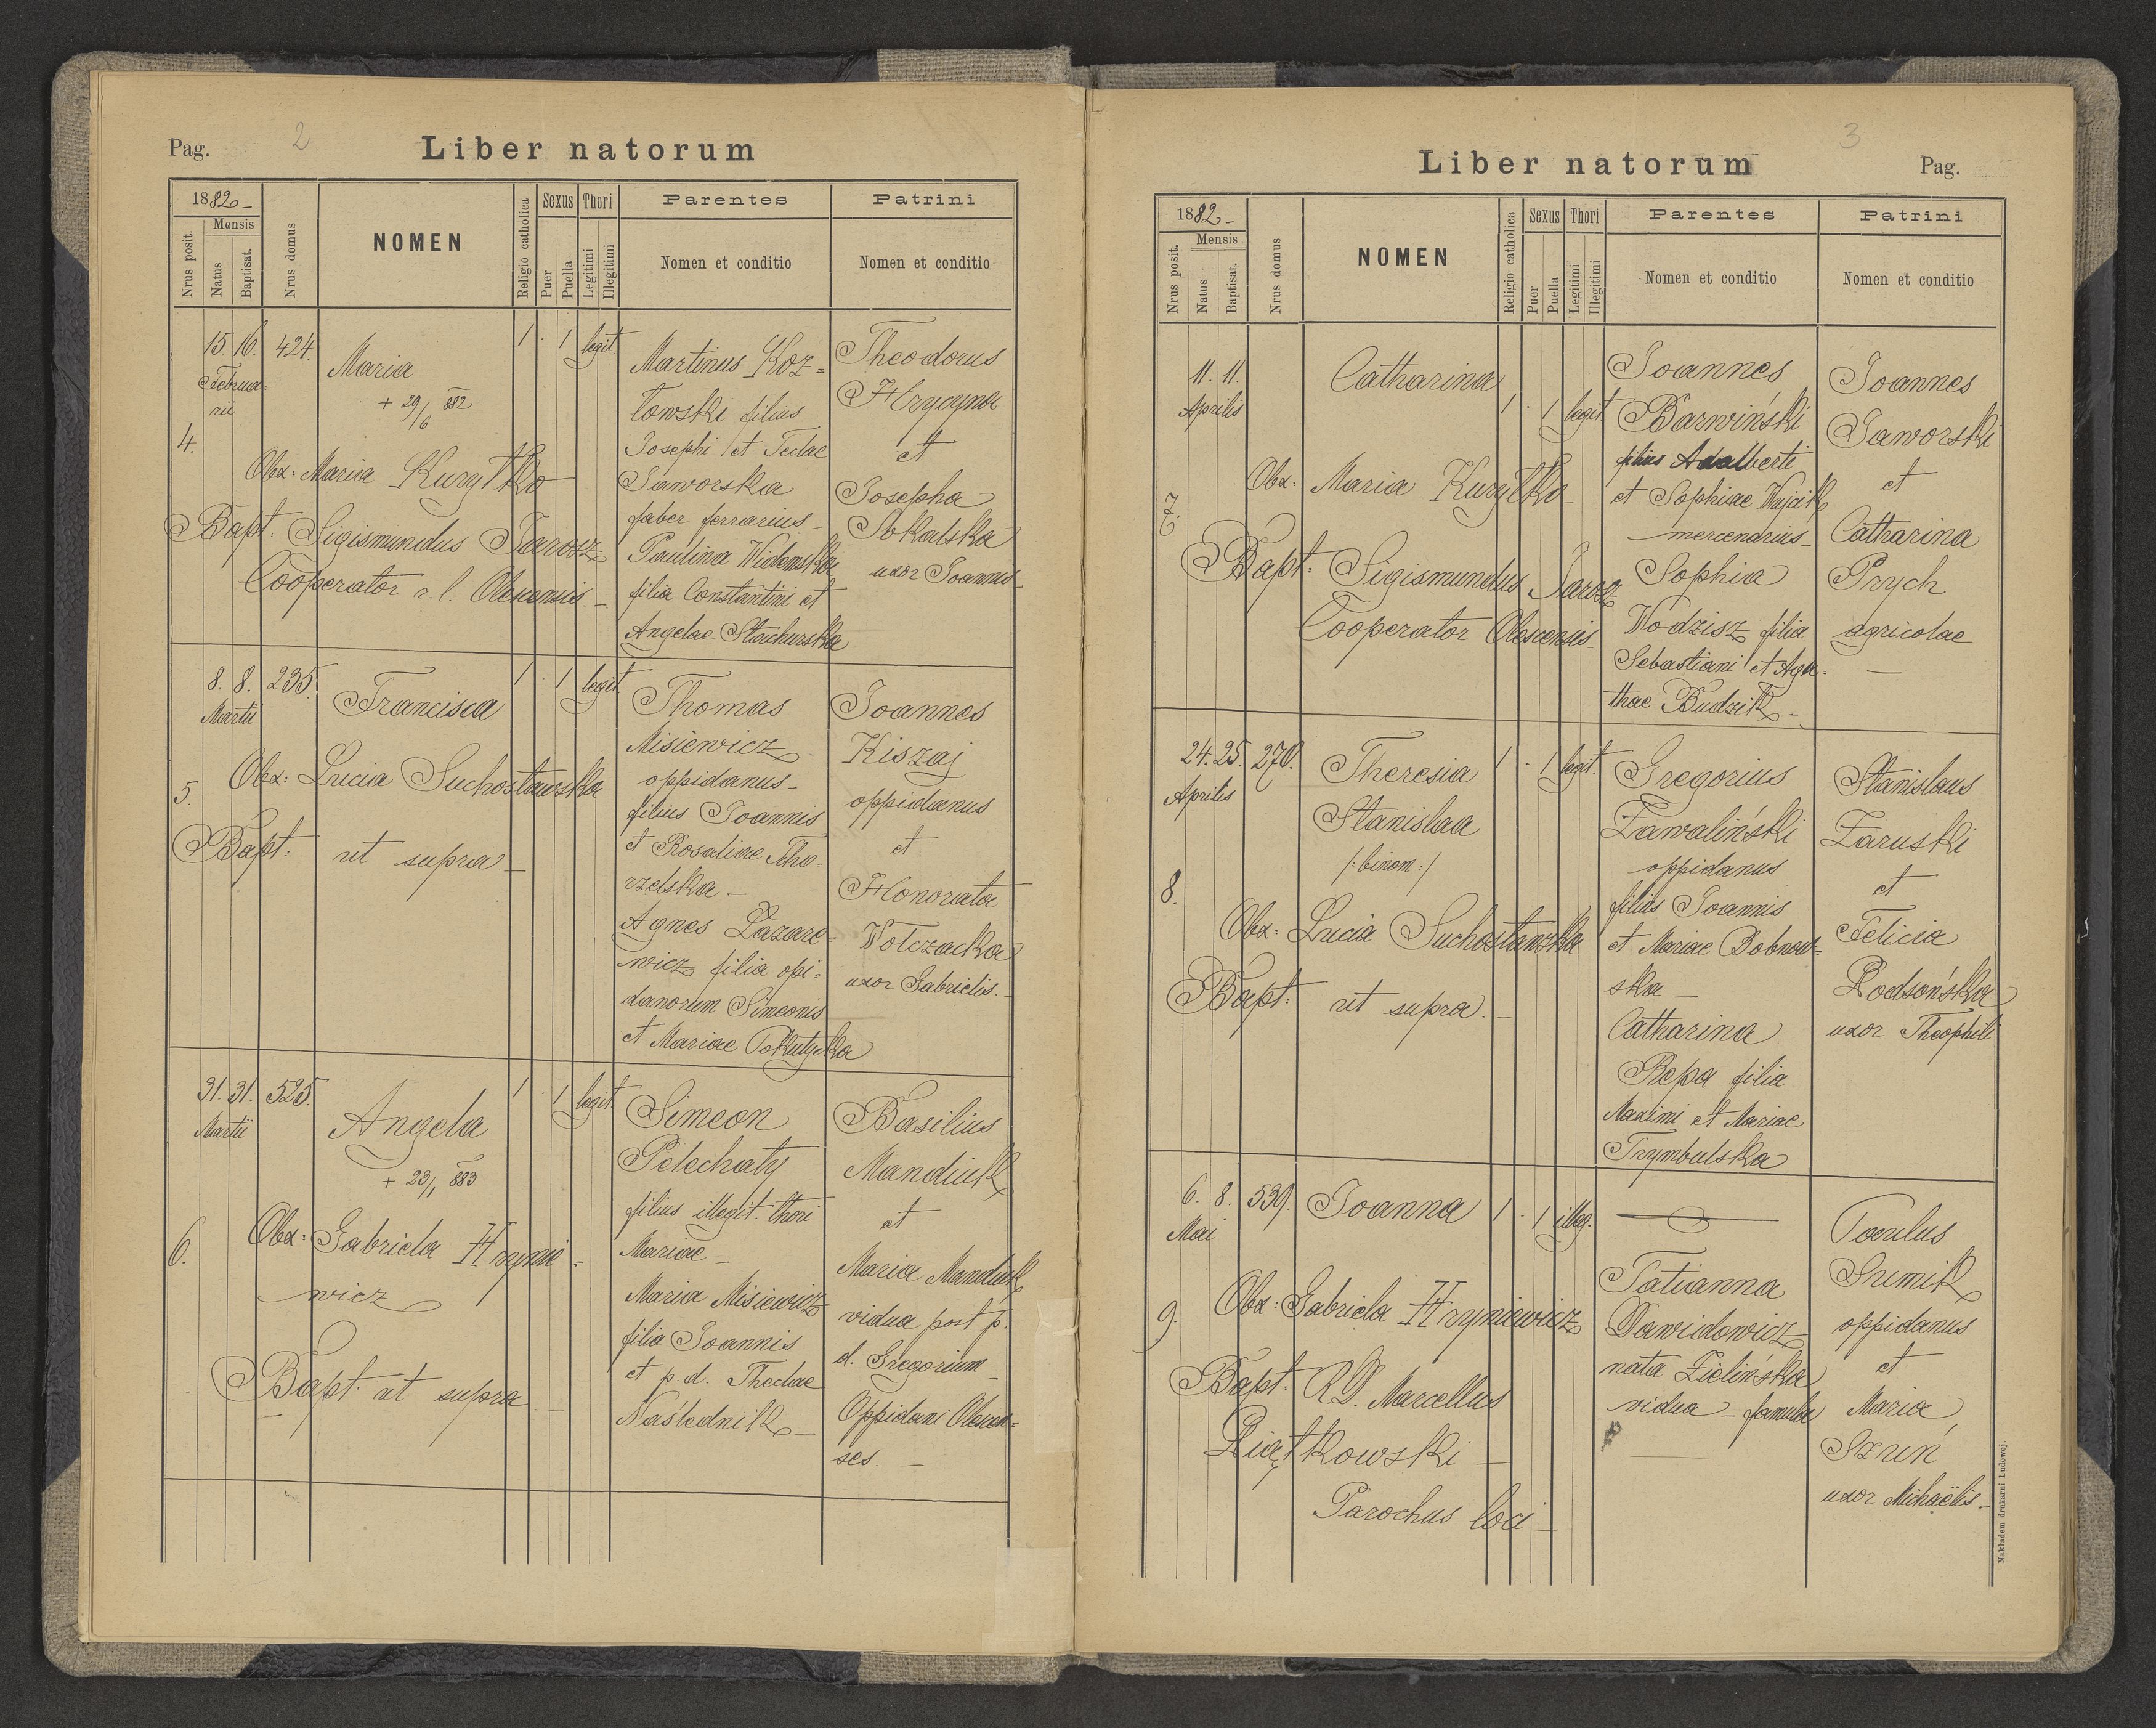 Pag. 2 Liber natorum
1882 -
Mensis
Nrus posit.
Natus
Baptisat.
Nrus domus
NOMEN
Religio catholica
Sexus
Puer
Puella
Thori
Legitimi
Illegitimi
Parentes
Nomen et conditio
Patrini
Nomen et conditio
4.
15. 16. 424.
Februa-
rii
Maria
+ 29/6 882
1 . 1 legit.
Obx: Maria Kuryłko
Bapt. Sigismundus Jarosz
Cooperator r. l. Olescensis. -
Martinus Koz=
łowski filius
Josephi et Teclae
Jaworska
faber ferrarius -
Paulina Widomska
filia Constantini et
Angelae Stachurska
Theodorus
Hrycyna
et
Josepha
Sokalska
uxor Joannis
5.
8. 8. 235.
Martii
Francisca
1 . 1 legit.
Obx: Lucia Suchostawska
Bapt: ut supra -
Thomas
Misiewicz
oppidanus -
filius Joannis
et Rosaliae Tcho-
rzelska -
Agnes Łazare-
wicz filia opi=
danorum Simeonis
et Mariae Pokutycka
Joannes
Kiszaj
oppidanus
et
Honorata
Wołczacka
uxor Gabrielis. -
6.
31. 31. 525.
Martii
Angela
+ 23/1 883
1 . 1 legit.
Obx: Gabriela Hrynie=
wicz
Bapt. ut supra -
Simeon
Pelechaty
filius illegit. thori
Mariae -
Maria Misiewicz
filia Joannis
et p. d. Theclae
Naślednik -
Basilius
Mandiuk
et
Maria Mandiuk
vidua post p.
d. Gregorium -
Oppidani Olescen=
ses. -
Liber natorum 3 Pag.
1882 -
Mensis
Nrus posit.
Natus
Baptisat.
Nrus domus
NOMEN
Religio catholica
Sexus
Puer
Puella
Thori
Legitimi
Illegitimi
Parentes
Nomen et conditio
Patrini
Nomen et conditio
7.
11. 11.
Aprilis
Catharina
1 . 1 legit
Obx: Maria Kuryłko
Bapt: Sigismundus Jarosz
Cooperator Olescensis -
Joannes
Barwiński
filius Adalberti
et Sophiae Wajcik
mercenarius -
Sophia
Wodzisz filia
Sebastiani et Aga=
thae Budzik -
Joannes
Jaworski
et
Catharina
Prych
agricolae
-
8.
24. 25. 270.
Aprilis
Theresia
Stanislaa
/: binom :/
1 . 1 legit.
Obx: Lucia Suchostawska
Bapt: ut supra. -
Gregorius
Zawaliński
oppidanus
filius Joannis
et Mariae Dobrow-
ska -
Catharina
Repa filia
Maximi et Mariae
Trymbulska
Stanislaus
Zaruski
et
Felicia
Rodsońska
uxor Theophili
9.
6. 8. 539.
Mai
Joanna
1 . 1 illeg.
Obx: Gabriela Hryniewicz
Bapt: R. D. Marcellus
Piątkowski -
Parochus loci -
Tatianna
Dawidowicz
nata Zielińska
vidua - famula
Paulus
Sumik
oppidanus
et
Maria
Szuń
uxor Michaëlis -
Nakładem drukarni Ludowej.